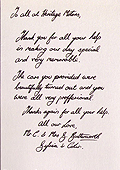 To all at Heritage Motors,
Thank you for all your help
in making our day special
and very memorable.
The cars you provided were
beautifully turned out and you
were all very professional
Thanks again for all your help.
All our love,
Mr C. & Mrs G
Sylvia &